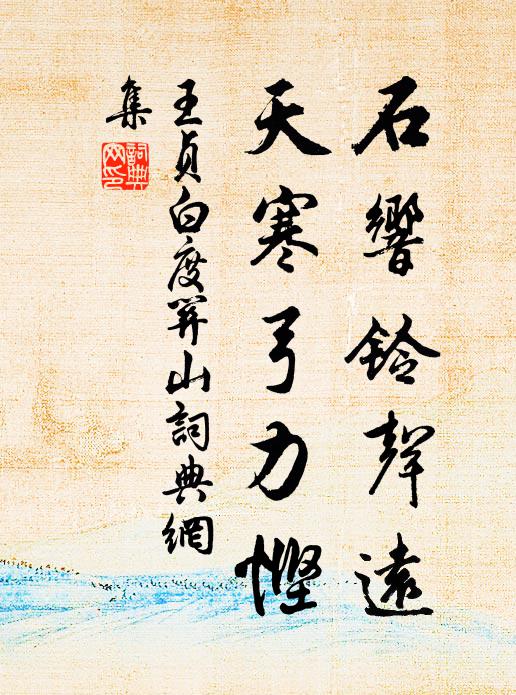 石響鈴聲遠
天寒弓力慳
王貞白度關山詞典網
集
詞典
网印